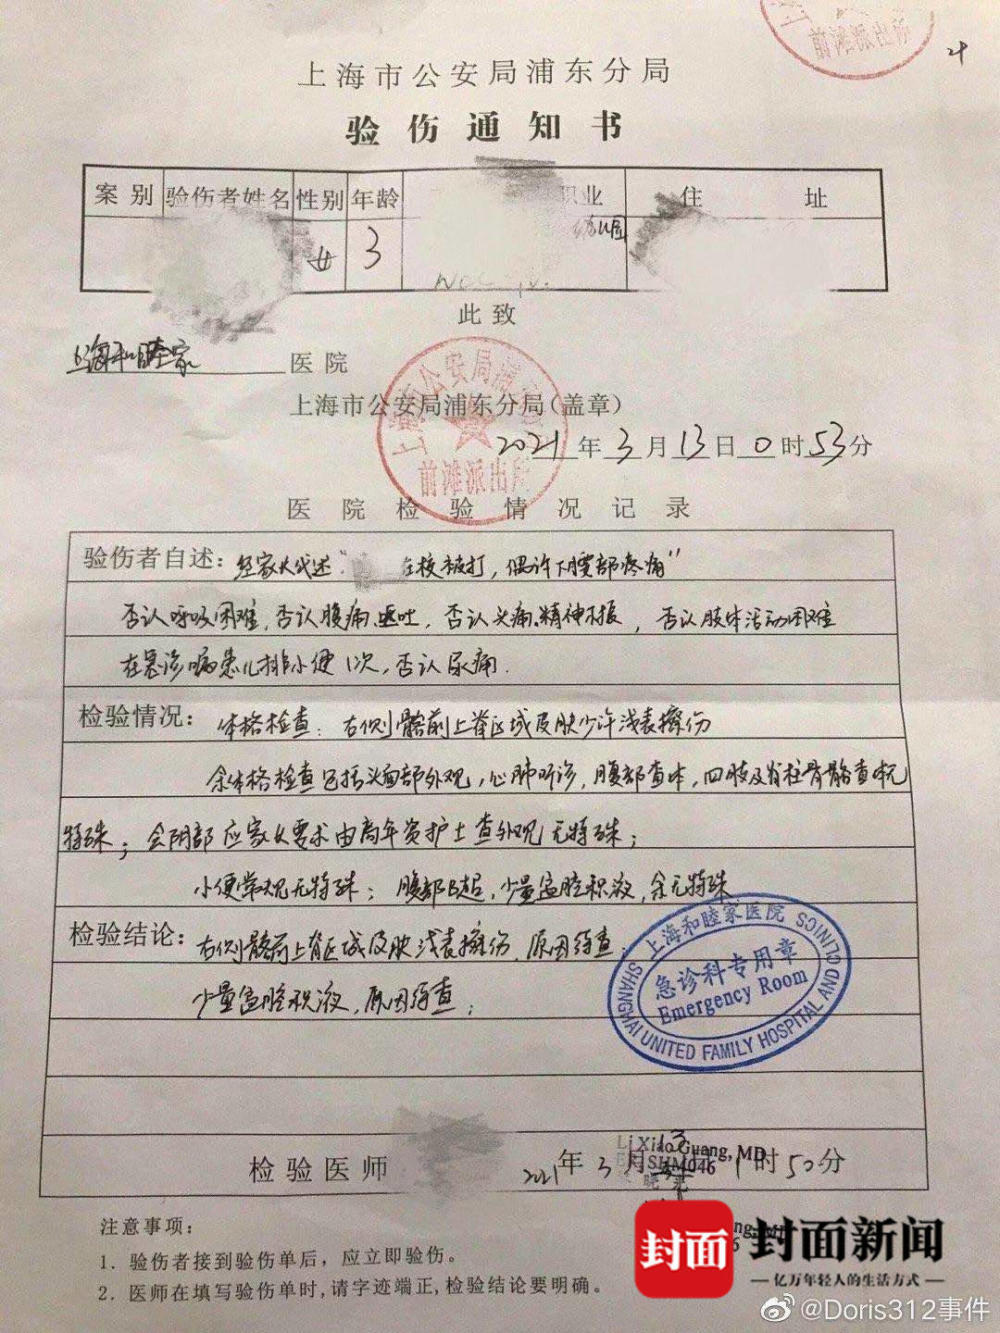 前滩派出所
上海市公安局浦东分局
验伤通知书
案别 验伤者姓名 性别 年龄 职业 住址
女 3 幼儿园
此致
上海和睦家 医院
上海市公安局浦东分局(盖章)
上海市公安局浦东分局
前滩派出所
2021年3月13日0时53分
医院检验情况记录
验伤者自述: 经家长代述“ 在校被打,偶诉下腹部疼痛”
否认呼吸困难,否认腹痛、呕吐,否认头痛、精神不振,否认肢体活动困难
在急诊嘱患儿排小便1次,否认尿痛.
检验情况: 体格检查:右侧髂前上脊区域皮肤少许浅表擦伤
余体格检查包括头面部外观,心肺听诊,腹部查体,四肢及脊柱骨骼查体无
特殊;会阴部应家长要求由高年资护士查外观无特殊;
小便常规无特殊;腹部B超,少量盆腔积液,余无特殊
检验结论: 右侧髂前上脊区域皮肤浅表擦伤,原因待查;
少量盆腔积液,原因待查;
上海和睦家医院
急诊科专用章
Emergency Room
SHANGHAI UNITED FAMILY HOSPITAL AND CLINICS
检验医师 2021年3月13 1时50分
Li Xiao Guang, MD
SHM046
注意事项:
1. 验伤者接到验伤单后,应立即验伤。
2. 医师在填写验伤单时,请字迹端正,检验结论要明确。
封面 封面新闻
亿万年轻人的生活方式
@Doris312事件